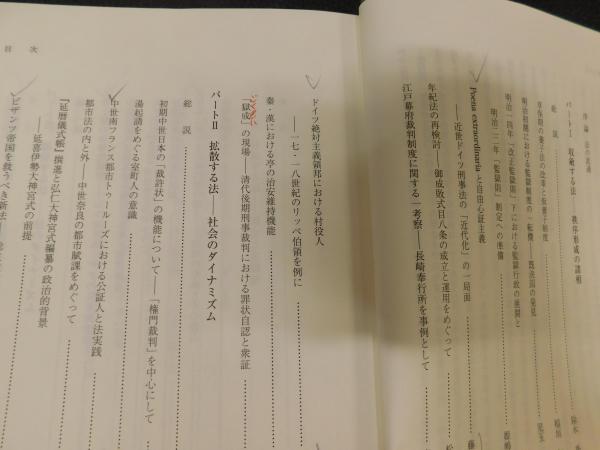 目次
序論 法の流通
パートⅠ 収斂する法――秩序形成の諸相
総説
享保期の養子法の改革と仮養子制度
明治初期における監獄制度の一転機――既決囚の発見
明治一四年「改正監獄則」下における監獄行政の展開と
明治二二年「監獄則」制定への準備
Poena extraordinaria と自由心証主義
――近世ドイツ刑事法の「近代化」の一局面
年紀法の再検討――御成敗式目八条の成立と運用をめぐって
江戸幕府裁判制度に関する一考察――長崎奉行所を事例として
ドイツ絶対主義領邦における村役人
――一七・一八世紀のリッペ伯領を例に
秦・漢における亭の治安維持機能
「獄成」の現場――清代後期刑事裁判における罪状自認と衆証
パートⅡ 拡散する法――社会のダイナミズム
総説
初期中世日本の「裁許状」の機能について――「権門裁判」を中心にして
湯起請をめぐる室町人の意識
中世南フランス都市トゥールーズにおける公証人と法実践
都市法の内と外――中世奈良の都市賦課をめぐって
『延暦儀式帳』撰進と弘仁大神宮式編纂の政治的背景
――延喜伊勢大神宮式の前提
ビザンツ帝国を救うべき新法